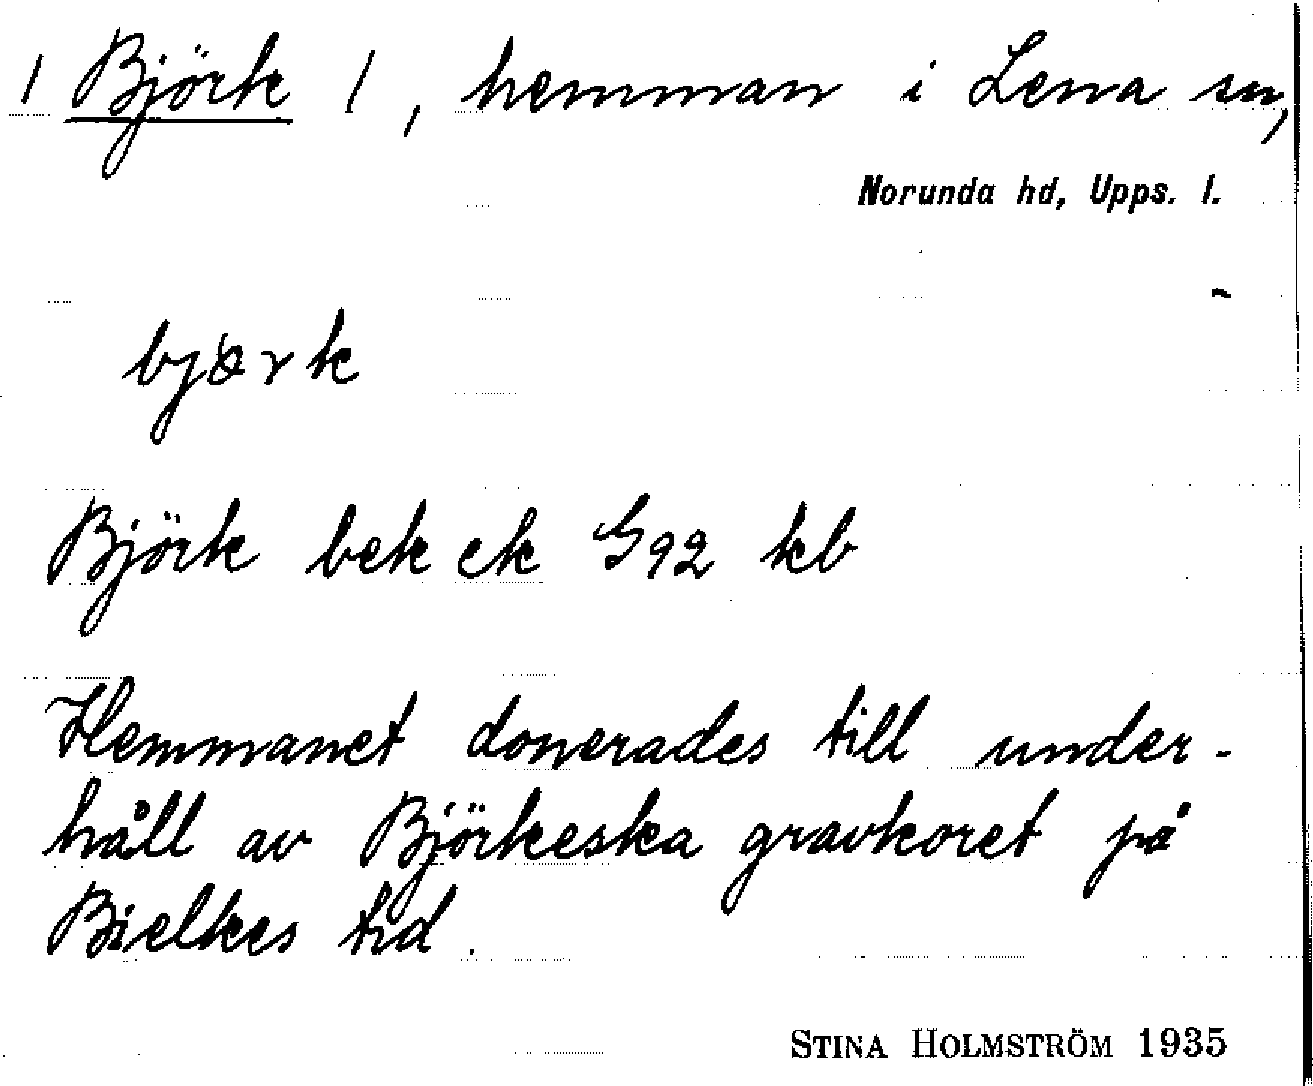 / Björk /, hemman i Lena sn,
Norunda hd, Upps. l.
björk
Björk bek ek G92 kb
Hemmanet donerades till under-
håll av Björkeska gravkoret på
Bielkes tid.
STINA HOLMSTRÖM 1935